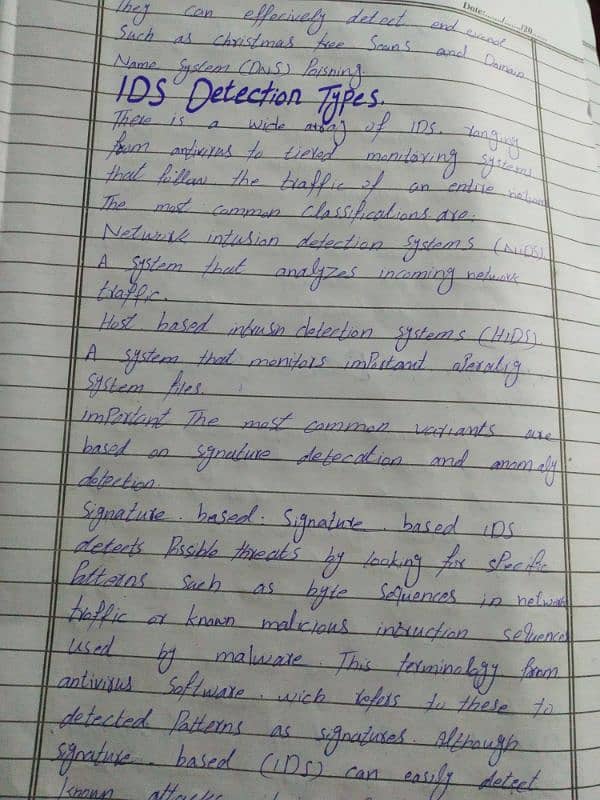 They can effecively detect end evand
Date:....../....../20......
Such as christmas tree Scans and Domain
Name System (DNS) Poisning.
IDS Detection Types.
There is a wide array of IDS, ranging
from antivirus to tiered monitoring systems
that follow the traffic of an entire network
The most common classifications are:
Network intusion detection systems (NIDS)
A system that analyzes incoming network
traffic.
Host based intrusn detection systems (HIDS)
A system that monitors important operatig
system files.
important The most common variants are
based on signature detecation and anomaly
detection.
Signature. based. Signature. based IDS
detects Possible threats by looking for specific
Patterns such as byte sequences in network
traffic or known malicious intruction sequences
used by malware. This terminology from
antivirus software. wich refers to these to
detected Patterns as signatures. Although
signature. based (IDS) can easily detect
known attacks